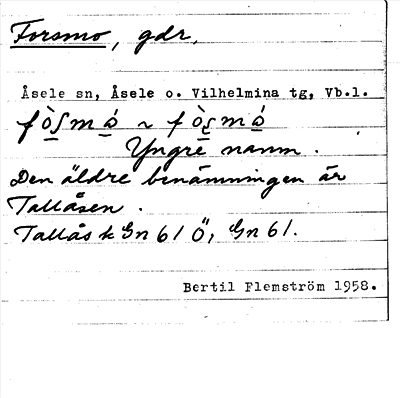 Forsmo, gdr,
Åsele sn, Åsele o. Vilhelmina tg, Vb.l.
fòʃmó̱ ~ fòʂmó̱
Yngre namn.
Den äldre benämningen är
Tallåsen.
Tallås k Gn 61 Ö, Gn 61.
Bertil Flemström 1958.